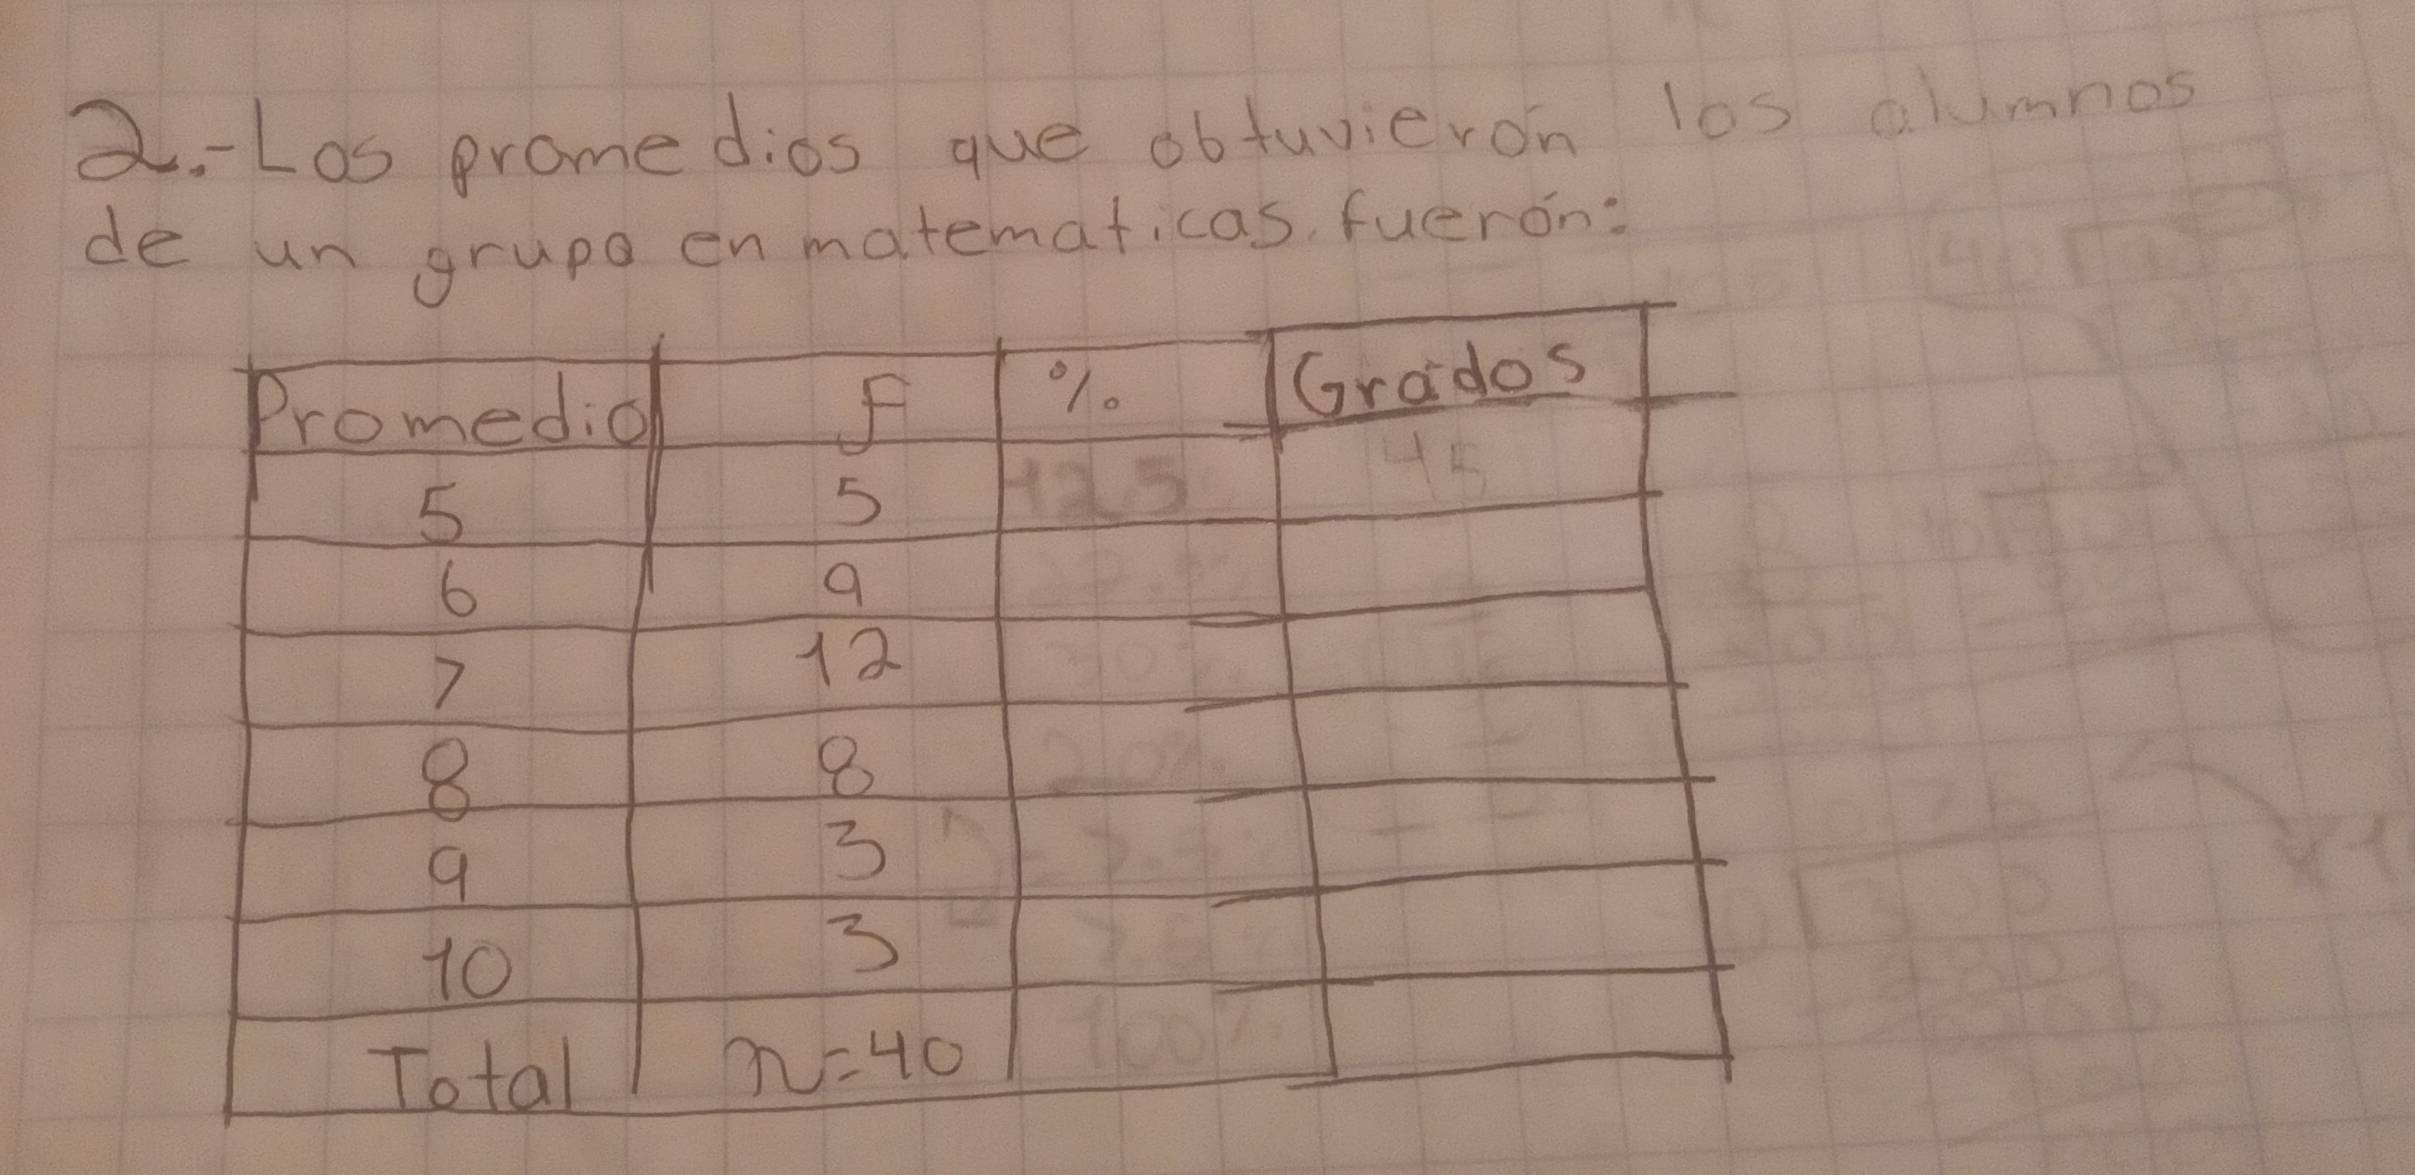 2.-Los promedios que obtuvierón los alumnos
de un grupo en matematicas fuerón:
Promedio F % Grados
5 5 12.5 45
6 9
7 12 30%
8 8 20%
9 3 7.5%
10 3 7.5%
Total n=40 100%